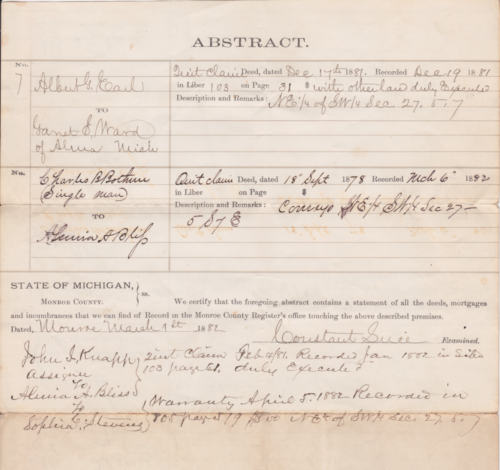 ABSTRACT.
No. 7
Albert G. Earl
TO
Garret E. Ward
of Alma Mich
Quit Claim Deed, dated Dec 17th 1881. Recorded Dec 19 1881
in Liber 103 on Page 31 $ with other land duly Executed
Description and Remarks: NE/4 of SW/4 Sec 27. 5. 7
No.
Charles B Bothum
(Single man)
TO
Almira A Bliss
Quit claim Deed, dated 18" Sept 1878 Recorded Mch 6" 1882
in Liber on Page $
Description and Remarks: Conveys NE/4 SW/4 Sec 27-
5 S 7 E
STATE OF MICHIGAN,
MONROE COUNTY. ss.
We certify that the foregoing abstract contains a statement of all the deeds, mortgages
and incumbrances that we can find of Record in the Monroe County Register's office touching the above described premises.
Dated, Monroe March 9th 1882
Constant Luce Examined.
John I. Knapp
Assignee
To
Almira A. Bliss
Quit Claim Feb 4/81. Recorded Jan 1882 in Liber
103 page 61. duly Executed
To
Sophia E. Stevens
Warranty April 5. 1882 Recorded in
108 page 519 NE of SW/4 Sec 27. 5. 7